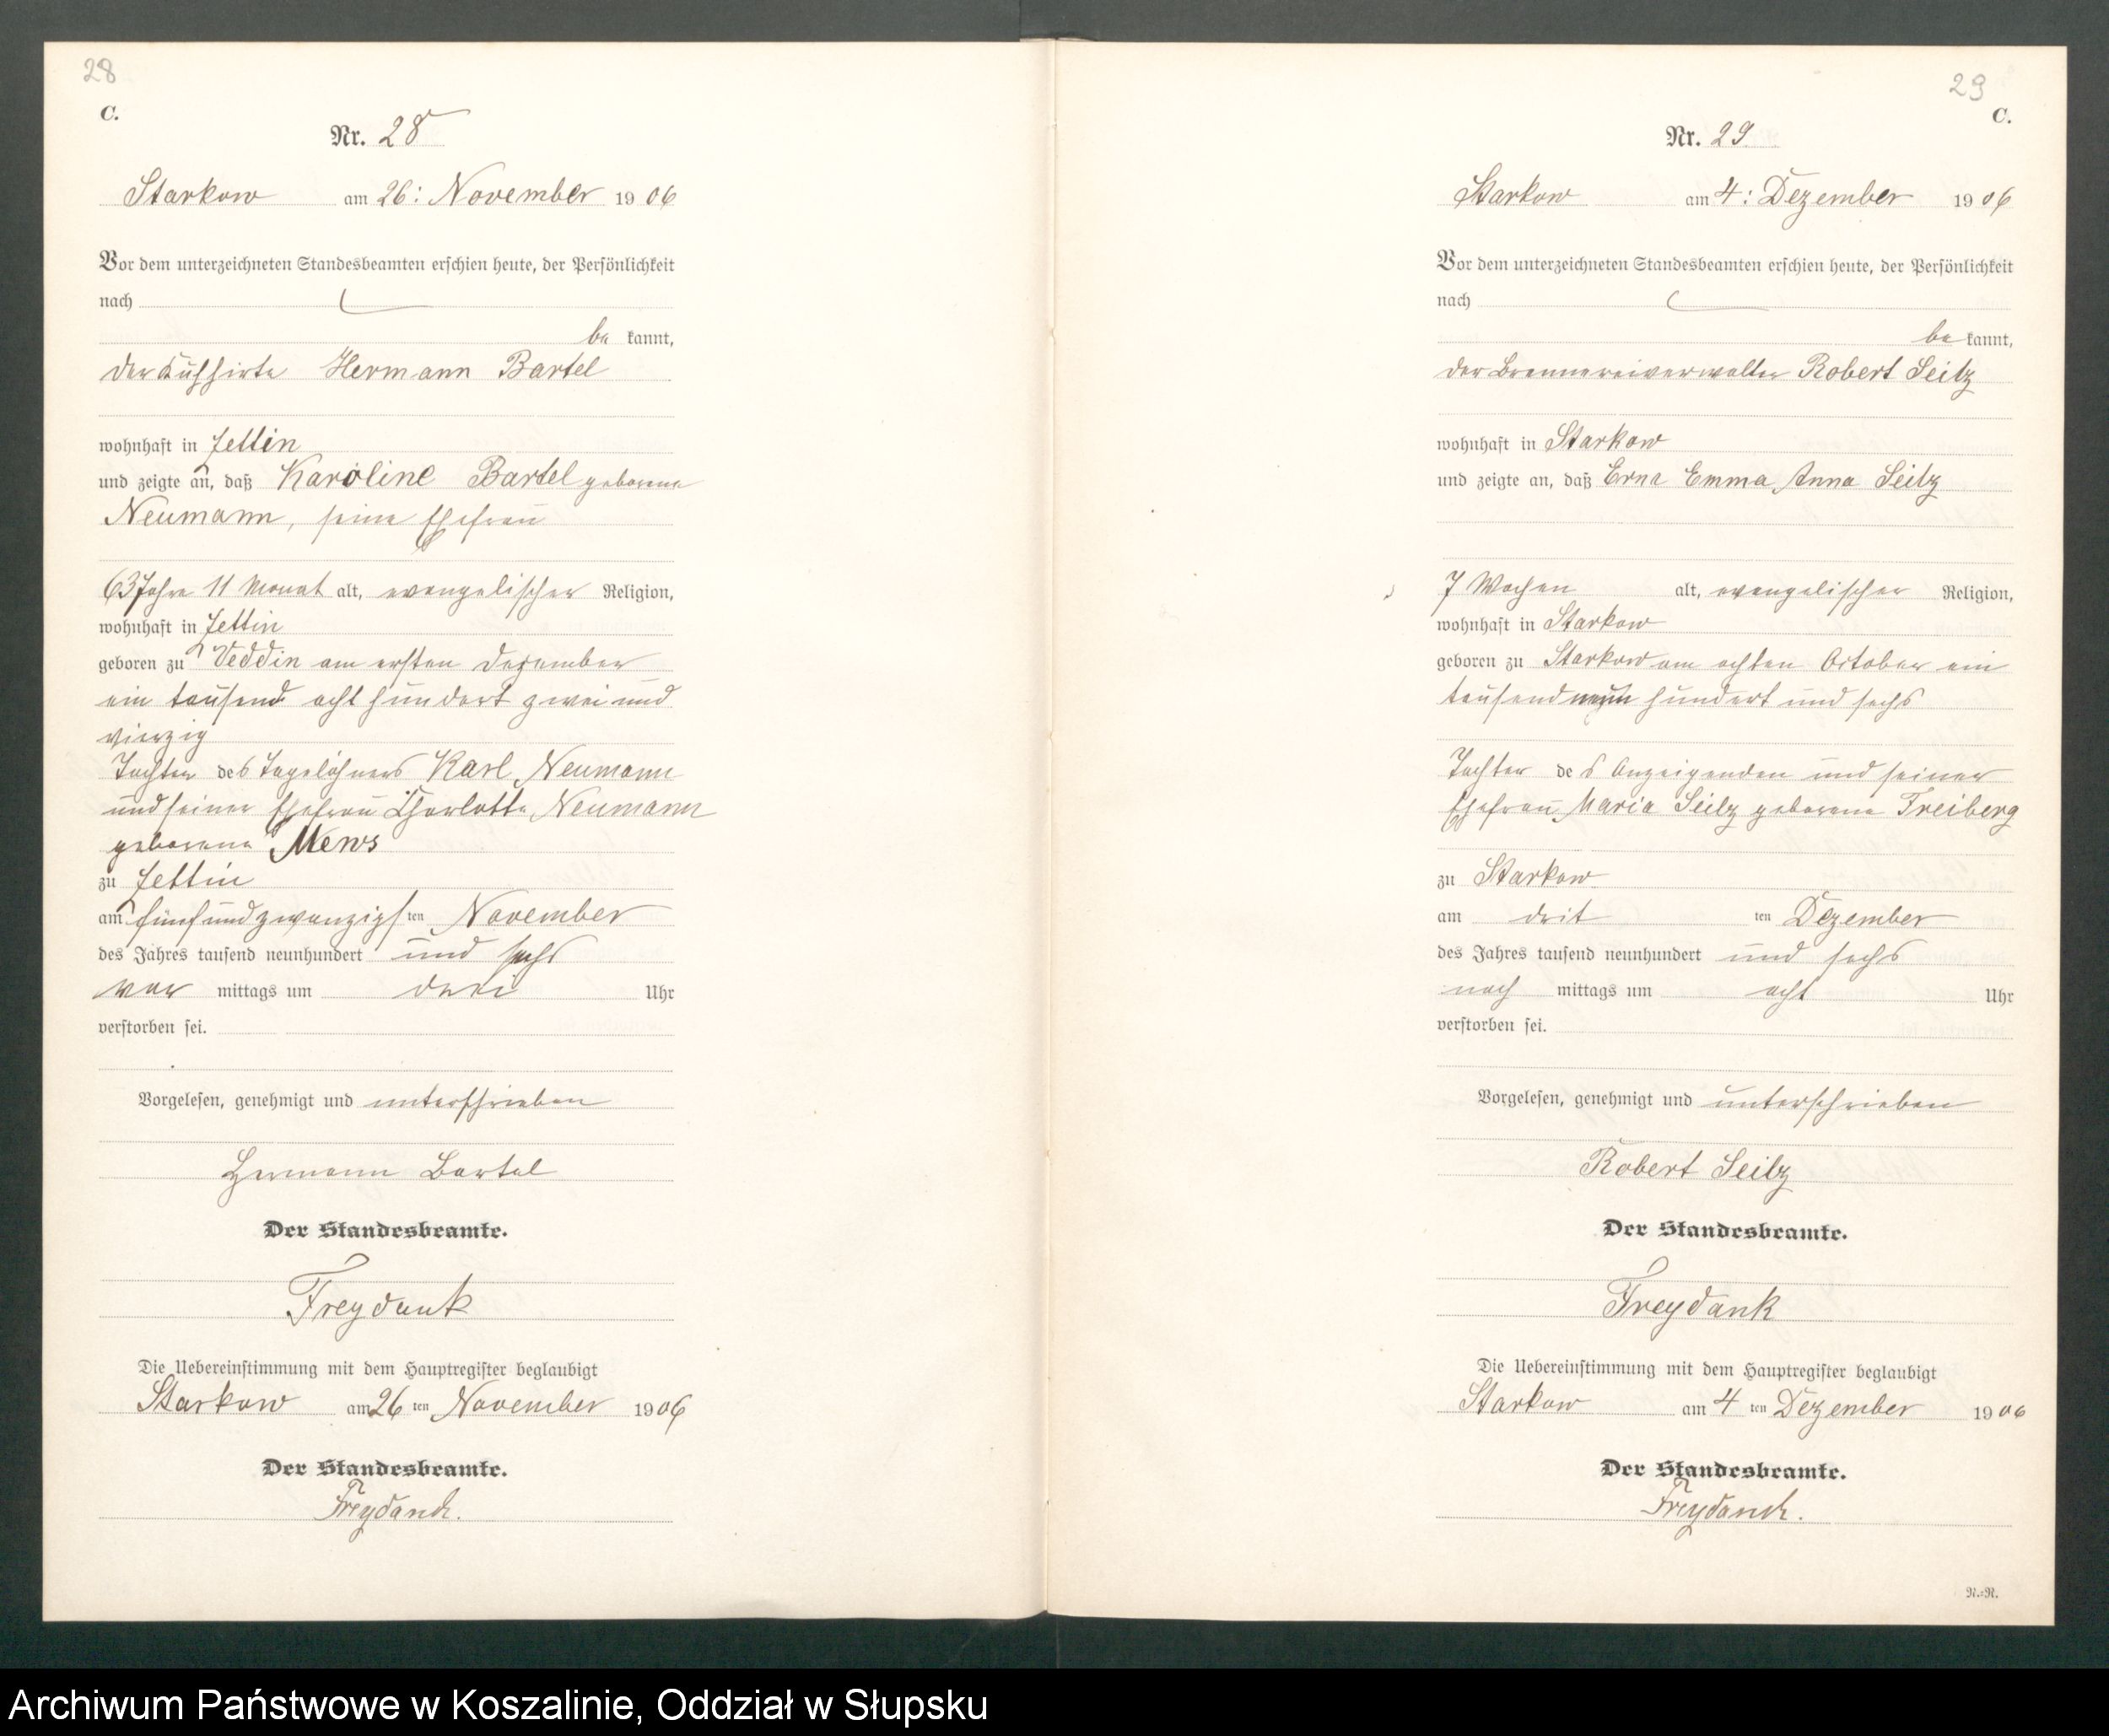 28
C.
Nr. 28
Starkow am 26: November 1906
Vor dem unterzeichneten Standesbeamten erschien heute, der Persönlichkeit
nach
be kannt,
der Kuhhirte Hermann Bartel
wohnhaft in Zettin
und zeigte an, daß Karoline Bartel geborene
Neumann, seine Ehefrau
63 Jahre 11 Monat alt, evangelischer Religion,
wohnhaft in Zettin
geboren zu Veddin am ersten Dezember
ein tausend acht hundert zwei und
vierzig
Tochter des Tagelöhners Karl Neumann
und seiner Ehefrau Charlotte Neumann
geborene Mews
zu Zettin
am fünfundzwanzigsten November
des Jahres tausend neunhundert und sechs
vor mittags um drei Uhr
verstorben sei.
Vorgelesen, genehmigt und unterschrieben
Hermann Bartel
Der Standesbeamte.
Freydank
Die Uebereinstimmung mit dem Hauptregister beglaubigt
Starkow am 26 ten November 1906
Der Standesbeamte.
Freydank.
29
C.
Nr. 29.
Starkow am 4: Dezember 1906
Vor dem unterzeichneten Standesbeamten erschien heute, der Persönlichkeit
nach
be kannt,
der Brennereiverwalter Robert Seitz
wohnhaft in Starkow
und zeigte an, daß Erna Emma Anna Seitz
7 Wochen alt, evangelischer Religion,
wohnhaft in Starkow
geboren zu Starkow am achten October ein
tausend neun hundert und sechs
Tochter des Anzeigenden und seiner
Ehefrau Maria Seitz geborene Freiberg
zu Starkow
am drit ten Dezember
des Jahres tausend neunhundert und sechs
nach mittags um acht Uhr
verstorben sei.
Vorgelesen, genehmigt und unterschrieben
Robert Seitz
Der Standesbeamte.
Freydank
Die Uebereinstimmung mit dem Hauptregister beglaubigt
Starkow am 4 ten Dezember 1906
Der Standesbeamte.
Freydank.
N.=N.
Archiwum Państwowe w Koszalinie, Oddział w Słupsku